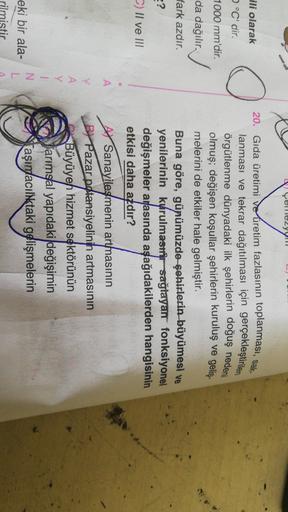 III olarak
°C dir.
1000 mm'dir.
da dağılır.
fark azdır.
C) II ve III
eki bir ala-
20. Gıda üretimi ve üretim fazlasının toplanması, sak-
lanması ve tekrar dağıtılması için gerçekleştirilen
örgütlenme dünyadaki ilk şehirlerin doğuş nedeni
olmuş; değişen koşullar şehirlerin kuruluş ve geliş-
melerini de etkiler hale gelmiştir.
Buna göre, günümüzde şehirlerin büyümesi ve
yenilerinin kurulmasını sağlayan fonksiyonel
değişmeler arasında aşağıdakilerden hangisinin
etkisi daha azdır?
A) Sanayileşmenin artmasının
B) Pazar potansiyelinin artmasının
Büyüyen hizmet sektörünün
Tarımsal yapıdaki değişimin
Taşımacılıktaki gelişmelerin